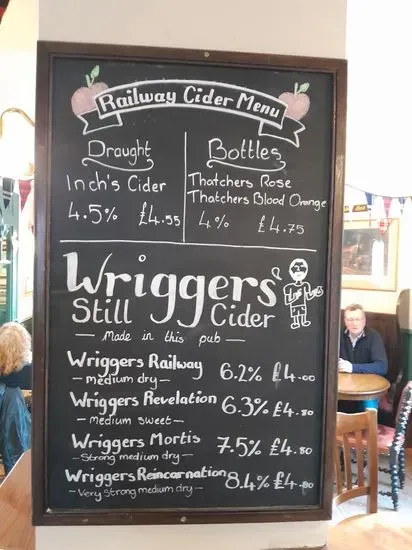 Railway Cider Menu
Draught
Inch's Cider
4.5% £4.55
Bottles
Thatchers Rose
Thatchers Blood Orange
4% £4.75
Wriggers
Still Cider
— Made in this pub —
Wriggers Railway 6.2% £4.00
— medium dry —
Wriggers Revelation 6.3% £4.80
— medium sweet —
Wriggers Mortis 7.5% £4.80
— Strong medium dry —
Wriggers Reincarnation 8.4% £4.80
— Very strong medium dry —